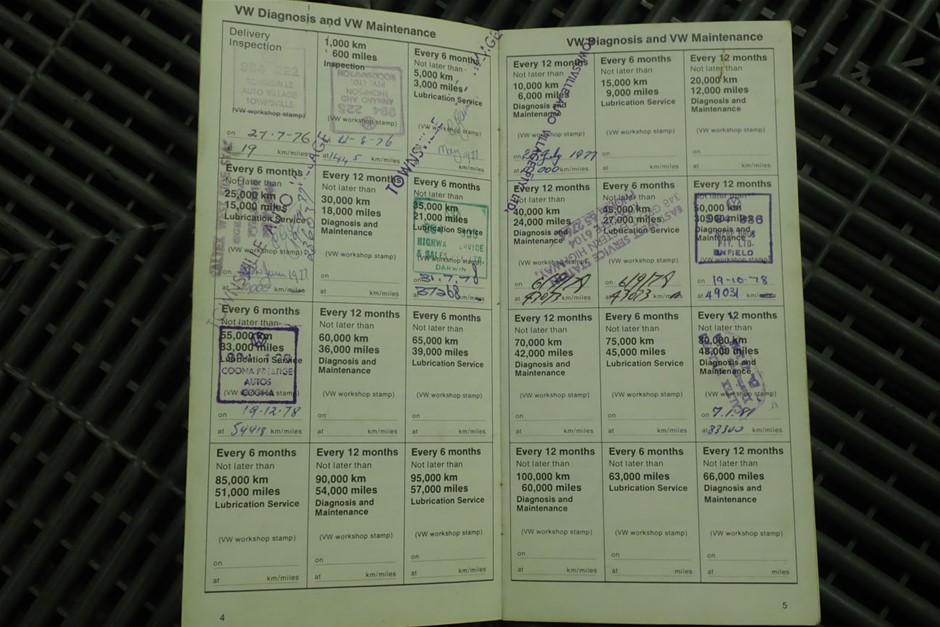 VW Diagnosis and VW Maintenance
Delivery
Inspection
(VW workshop stamp)
on 27-7-76
19 km/miles
1,000 km
600 miles
Inspection
994 228
km/miles
Every 6 months
Not later than
5,000 km
3,000 miles
Lubrication Service
(VW workshop stamp)
TOWNSVILLE
km/miles
Every 6 months
Not later than
25,000 km
15,000 miles
Lubrication Service
Every 12 months
30,000 km
18,000 miles
Diagnosis and
Maintenance
Every 6 months
Not later than
35,000 km
21,000 miles
Lubrication Service
DARWIN
31.7.78
37268
Every 6 months
Not later than
55,000 km
33,000 miles
Lubrication Service
COOMA PRESTIGE
AUTOS
COOMA
on 19-12-78
at 54418 km/miles
Every 12 months
Not later than
60,000 km
36,000 miles
Diagnosis and
Maintenance
(VW workshop stamp)
on
at km/miles
Every 6 months
Not later than
65,000 km
39,000 miles
Lubrication Service
(VW workshop stamp)
on
at km/miles
Every 6 months
Not later than
85,000 km
51,000 miles
Lubrication Service
(VW workshop stamp)
on
at km/miles
Every 12 months
Not later than
90,000 km
54,000 miles
Diagnosis and
Maintenance
(VW workshop stamp)
on
at km/miles
Every 6 months
Not later than
95,000 km
57,000 miles
Lubrication Service
(VW workshop stamp)
on
at km/miles
4
VW Diagnosis and VW Maintenance
Every 12 months
Not later than
10,000 km
6,000 miles
Diagnosis and
Maintenance
(VW workshop stamp)
Every 6 months
Not later than
15,000 km
9,000 miles
Lubrication Service
(VW workshop stamp)
on
at km/miles
Every 12 months
Not later than
20,000 km
12,000 miles
Diagnosis and
Maintenance
(VW workshop stamp)
on
at km/miles
Every 12 months
Not later than
40,000 km
24,000 miles
Diagnosis and
Maintenance
Every 6 months
Not later than
45,000 km
27,000 miles
Lubrication Service
Every 12 months
Not later than
50,000 km
30,000 miles
PTY. LTD.
ENFIELD
on 19-10-78
at 49031
Every 12 months
Not later than
70,000 km
42,000 miles
Diagnosis and
Maintenance
(VW workshop stamp)
on
at km/miles
Every 6 months
Not later than
75,000 km
45,000 miles
Lubrication Service
(VW workshop stamp)
on
at km/miles
Every 12 months
Not later than
80,000 km
48,000 miles
Diagnosis and
Maintenance
on 7.1.81
at km/miles
Every 12 months
Not later than
100,000 km
60,000 miles
Diagnosis and
Maintenance
(VW workshop stamp)
on
at km/miles
Every 6 months
Not later than
63,000 miles
Lubrication Service
(VW workshop stamp)
on
at miles
Every 12 months
Not later than
66,000 miles
Diagnosis and
Maintenance
(VW workshop stamp)
on
at miles
5